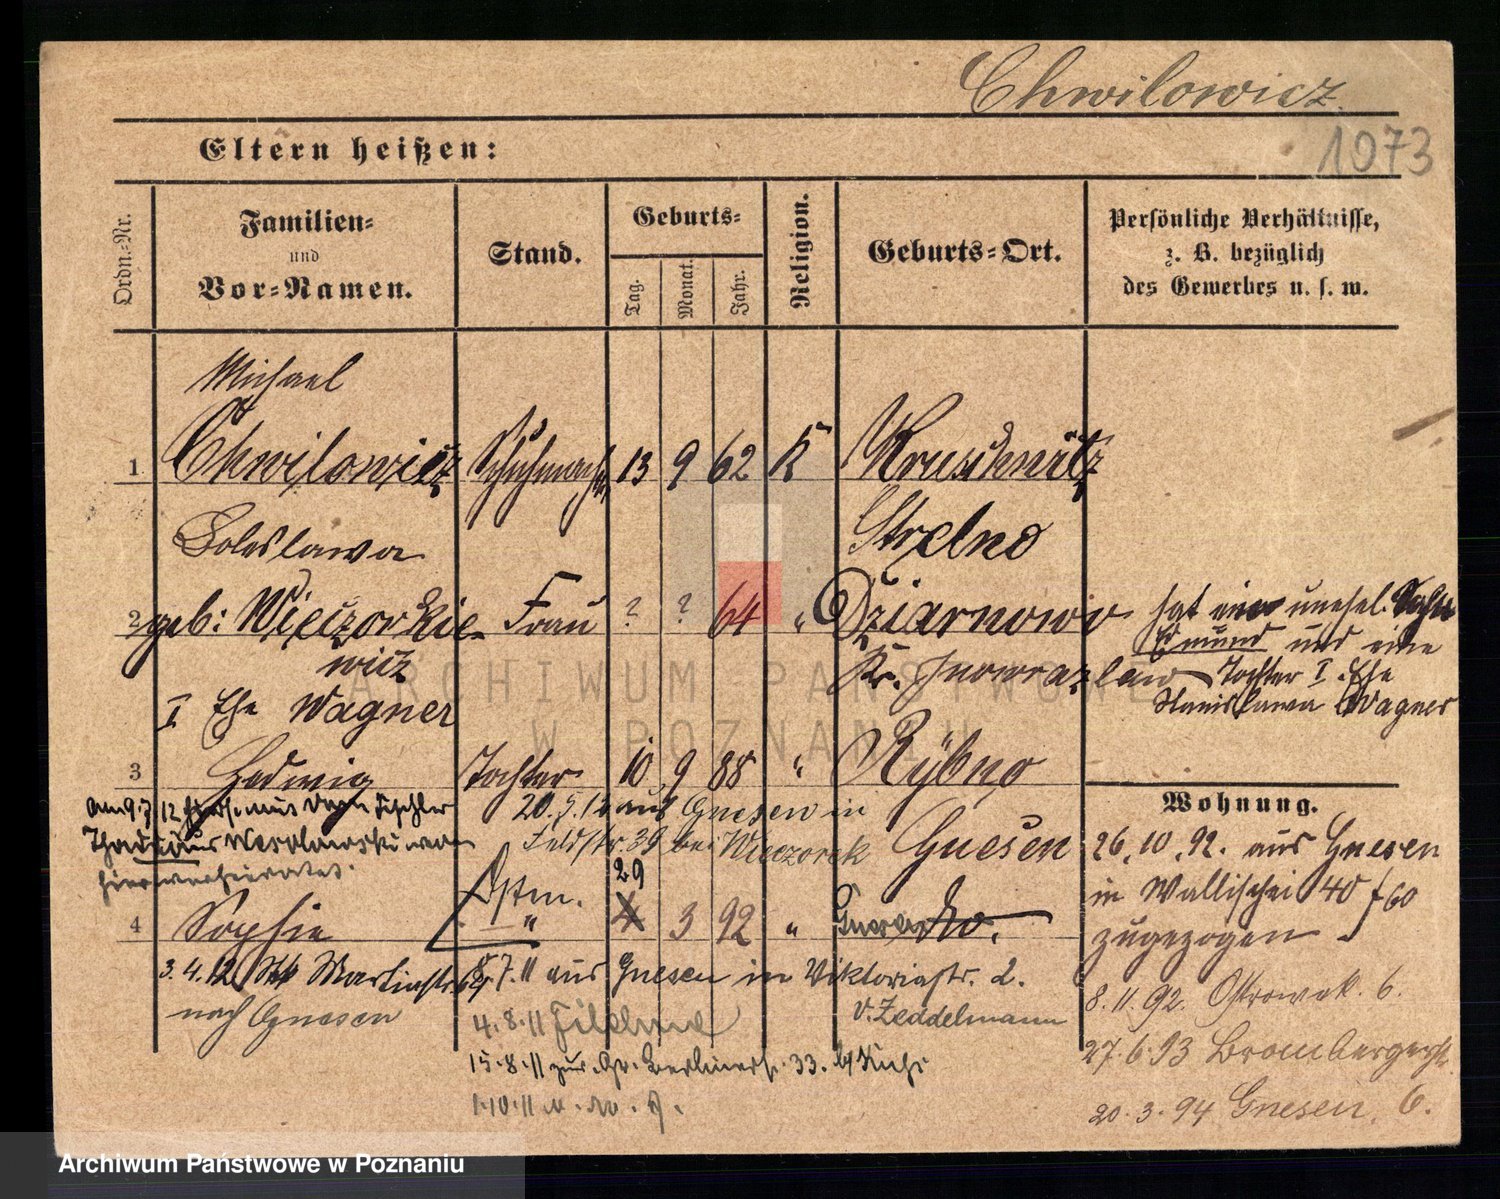 Chwilowicz
1073
Eltern heißen:
Ordn.-Nr.
Familien-
und
Vor-Namen.
Stand.
Geburts-
Tag.
Monat.
Jahr.
Religion.
Geburts-Ort.
Persönliche Verhältnisse,
z. B. bezüglich
des Gewerbes u. s. w.
Michael
1 Chwilowicz Schuhmacher 13 9 62 K Kruschwitz
Boleslawa Strelno
2 geb: Wieczorkie- Frau ? ? 64 " Dziarnowo hat unehel.
wicz Kr. Inowrazlaw
Edmund und eine
Tochter I. Ehe
I Ehe Wagner Stanislawa Wagner
3 Hedwig Tochter 10 9 88 " Rybno
Wohnung.
Am 9.7.12
Thaddäus
hier verheiratet.
20.5.12 aus Gnesen in
Feldstr. 39 bei Wieczorek
Gnesen
26.10.92. aus Gnesen
in Wallischei 40 f 60
zugezogen
29
4 Sophie " 4 3 92 " do.
3.4.12 Martinstr.
nach Gnesen
7.11 aus Gnesen in Viktoriastr. 2.
v. Zeddelmann
4.8.11
15.8.11 zur. Gr. Berlinerstr. 33. b/
1.10.11
8.11.92. Ostrowek. 6.
27.6.93 Brombergerstr.
20.3.94 Gnesen. 6.
ARCHIWUM PAŃSTWOWE
W POZNANIU
Archiwum Państwowe w Poznaniu